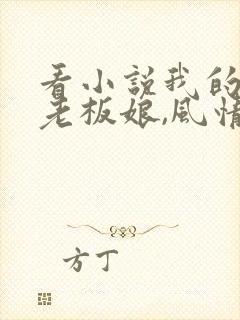 看小说我的
老板娘,风情
方丁